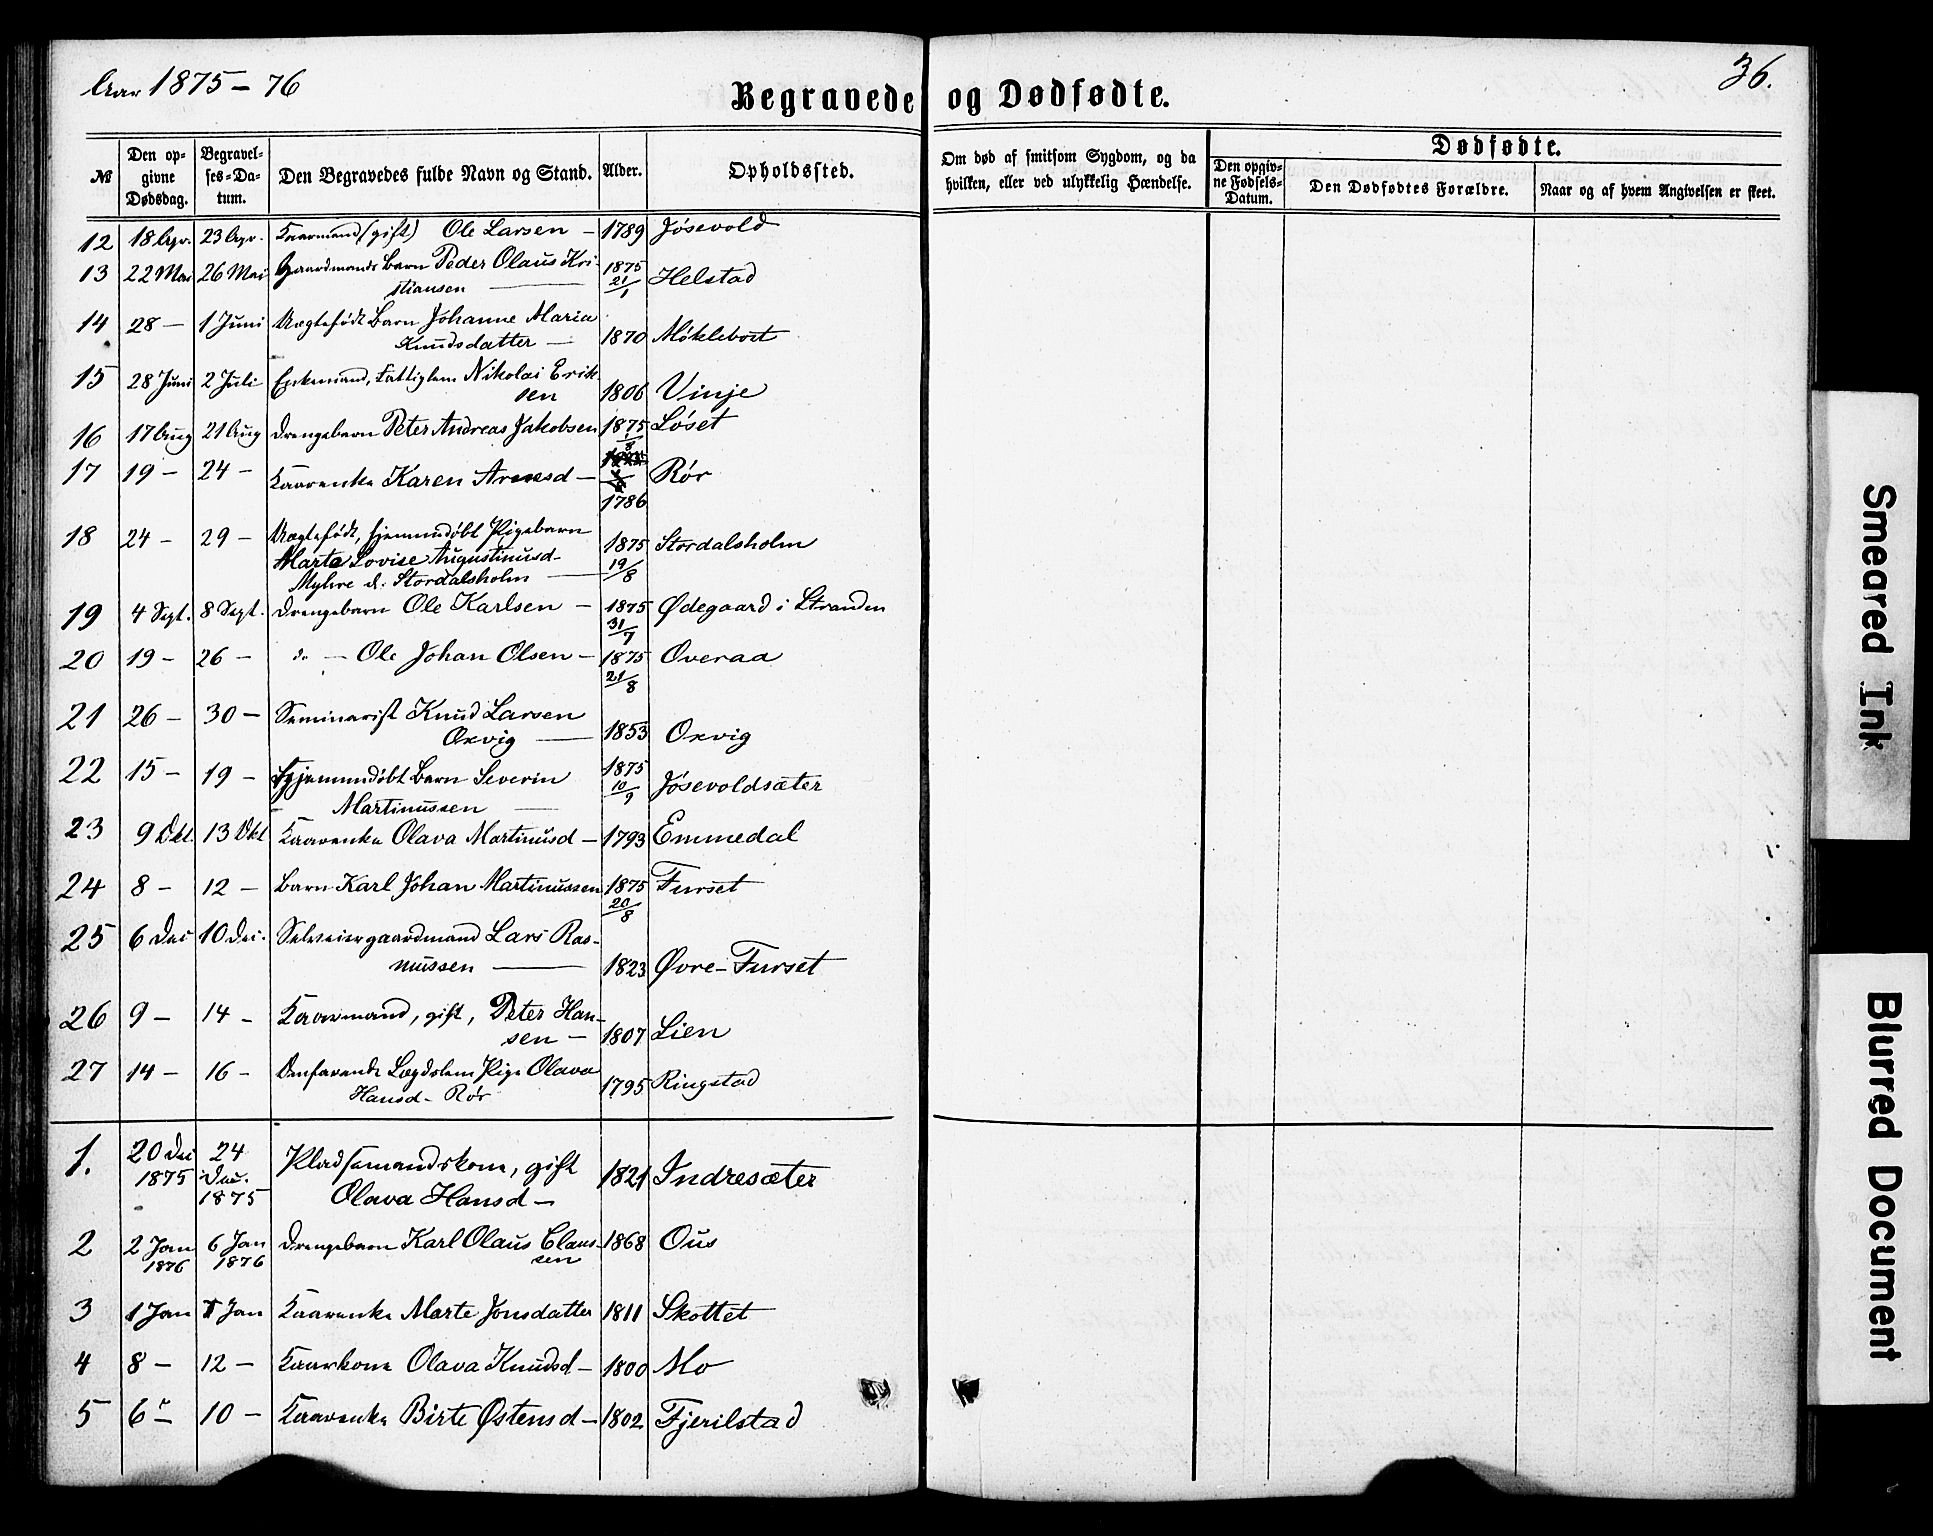 Aar 1875 – 76
Begravede og Dødfødte.
36.
№ | Den opgivne Dødsdag. | Begravelses-Datum. | Den Begravedes fulde Navn og Stand. | Alder. | Opholdssted. | Om død af smitsom Sygdom, og da hvilken, eller ved ulykkelig Hændelse. | Dødfødte. | Den opgivne Fødsels-Datum. | Den Dødfødtes Forældre. | Naar og af hvem Angivelsen er skeet.
12 18 Apr. 23 Apr. Kaarmand (gift) Ole Larsen – 1789 Jósevold
13 22 Mai 26 Mai Gaardmands Barn Peder Olaus Kri- 1875 21/1 Helstad
stiansen —
14 28 – 1 Juni Uægtefödt Barn Johanne Maria
Knudsdatter — 1870 Möklebost
15 28 Juni 2 Juli Enkemand, Fattiglem Nikolai Erik-
sen 1806 Vinje
16 17 Aug 21 Aug Drengebarn Peter Andreas Jakobsen 1875 1/8 Löset
17 19 – 24 – Kaarenke Karen Arnesd – 1786 Rör
18 24 – 29 – Uægtefödt, hjemmedöbt Pigebarn
Marta Lovise Augustinusd- 1875 19/8 Stordalsholm
Myhre d: Stordalsholm —
19 4 Sept. 8 Sept. Drengebarn Ole Karlsen – 1875 31/7 Ødegaard i Stranden
20 19 – 26 – do – Ole Johan Olsen – 1875 21/8 Overaa
21 26 – 30 – Seminarist Knud Larsen
Oxvig — 1853 Oxvig
22 15 – 19 – Hjemmedöbt Barn Severin 1875 10/9 Jósevoldsæter
Martinussen —
23 9 Okt. 13 Okt Kaarenke Olava Martinusd – 1793 Emmedal
24 8 – 12 – Barn Karl Johan Martinussen 1875 20/8 Furset
25 6 Dec 10 Dec. Selveiergaardmand Lars Ras-
mussen — 1823 Øvre-Furset
26 9 – 14 – Kaarmand, gift, Peter Han-
sen – 1807 Lien
27 14 – 16 – Omfarende Lægdslem Pige Olava
Hansd- Rör 1795 Ringstad
1. 20 Dec 1875 24 Dec. 1875 Pladsemandskone, gift
Olava Hansd – 1821 Indresæter
2 2 Jan 1876 6 Jan 1876 Drengebarn Karl Olaus Claus-
sen 1868 Ous
3 1 Jan 7 Jan Kaarenke Marte Jonsdatter 1811 Skottet
4 8 – 12 – Kaarkone Olava Knudsd – 1800 Mo
5 6 – 10 – Kaarenke Birte Østensd – 1802 Fjerilstad
Smeared Ink
Blurred Document